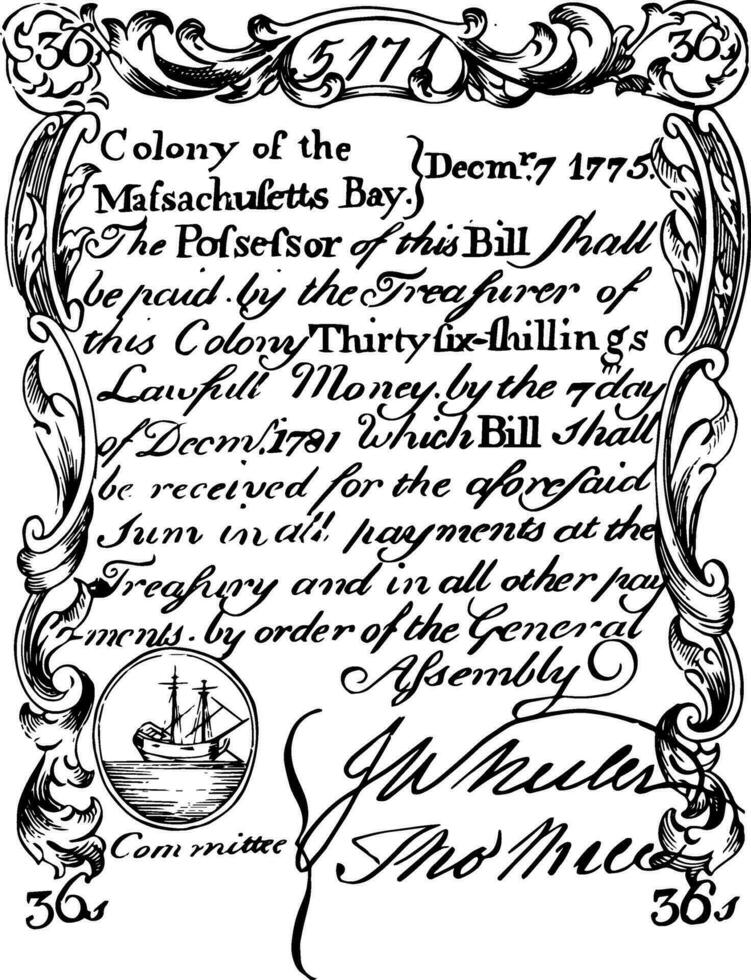 36 5171 36
Colony of the
Maſsachuſetts Bay. } Decmr. 7 1775.
The Poſseſsor of this Bill ſhall
be paid. by the Treaſurer of
this Colony Thirty ſix-ſhillings
Lawfull Money. by the 7 day
of Decmr. 1781 Which Bill ſhall
be received for the aforeſaid
Sum in all payments at the
Treaſury and in all other pay
ments. by order of the General
Aſsembly
J Wheeler
Committee
Tho
36s 36s